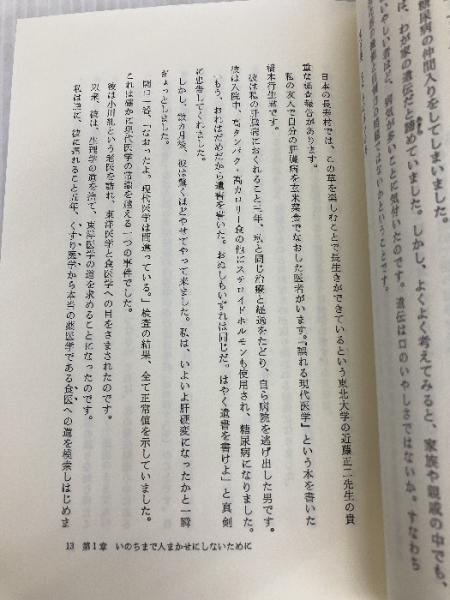 糖尿病の仲間入りをしてしまいました。
は、わが家の遺伝だと諦めていました。しかし、よくよく考えてみると、家族や親戚の中でも、
いやしい者ほど、病気が多いことに気付いたのです。遺伝は口のいやしさではないか。すなわち
ではないかということです。
日本の長寿村では、この草を楽しむことで長生きができているという東北大学の近藤正二先生の貴
重な報告があります。
私の友人で自分の肝臓病を玄米菜食でなおした医者がいます。『誤れる現代医学』という本を書いた
橋本行生君です。
彼は私の肝臓病におくれること三年、私と同じ治療と経過をたどり、自ら病院を逃げ出した男です。
彼は入院中、高タンパク・高カロリー食の他にステロイドホルモンも使用され、糖尿病になりました。
もう、おれはだめだから遺書を書いた。おぬしもいずれは同じだ。はやく遺書を書けよ」と真剣
に忠告してくれました。
しかし、数カ月後、彼は驚くほどやせてやって来ました。私は、いよいよ肝硬変になったかと一瞬
ぎょっとしました。
開口一番、「なおったよ。現代医学は間違っている。」検査の結果、全て正常値を示していました。
これは確かに現代医学の常識を越える一つの事件でした。
彼は小川乱という老医を訪れ、東洋医学と食医学への目をさまされたのです。
以来、彼は、生理学の道を捨て、東洋医学の道を求めることになったのです。
私は逆に、彼に遅れること五年、くすり医学から本当の薬医学である食医への道を模索しはじめま
13 第1章 いのちまで人まかせにしないために